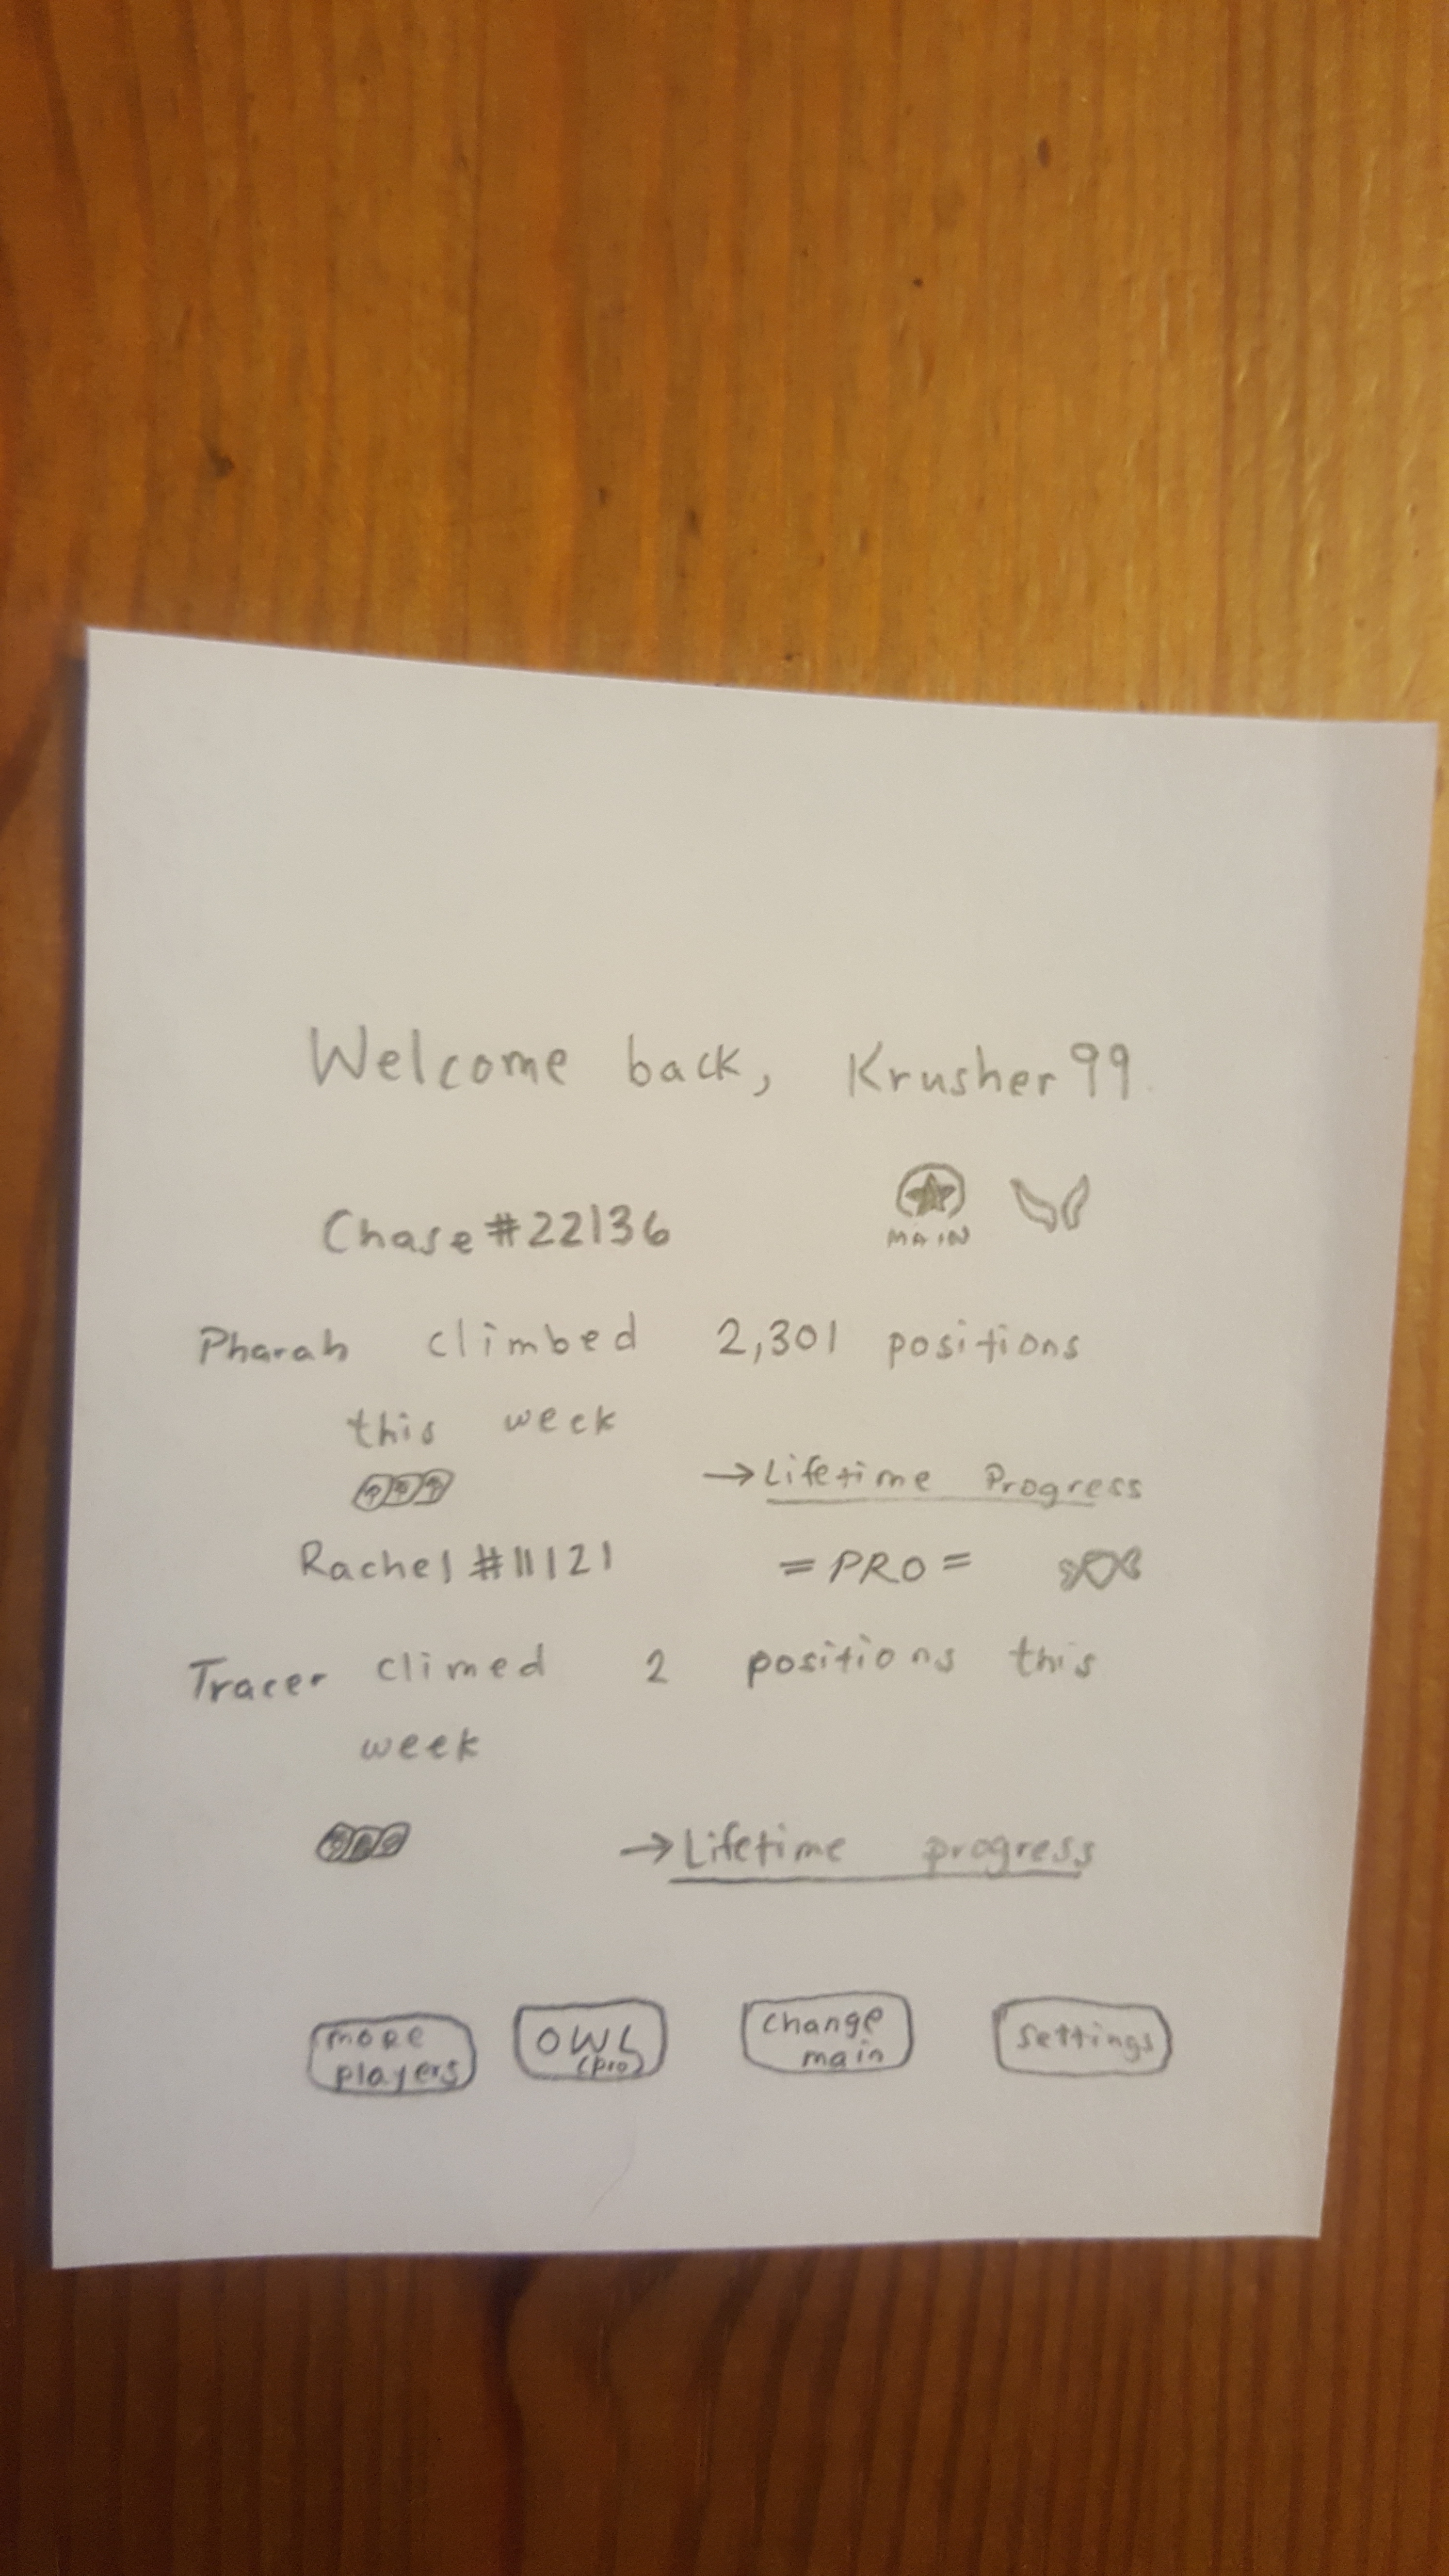 Welcome back, Krusher99
Chase#22136
MAIN
Pharah climbed 2,301 positions
this week
→Lifetime Progress
Rachel#11121 =PRO=
Tracer climed 2 positions this
week
→Lifetime progress
more
players
OWL
(pro)
change
main
settings